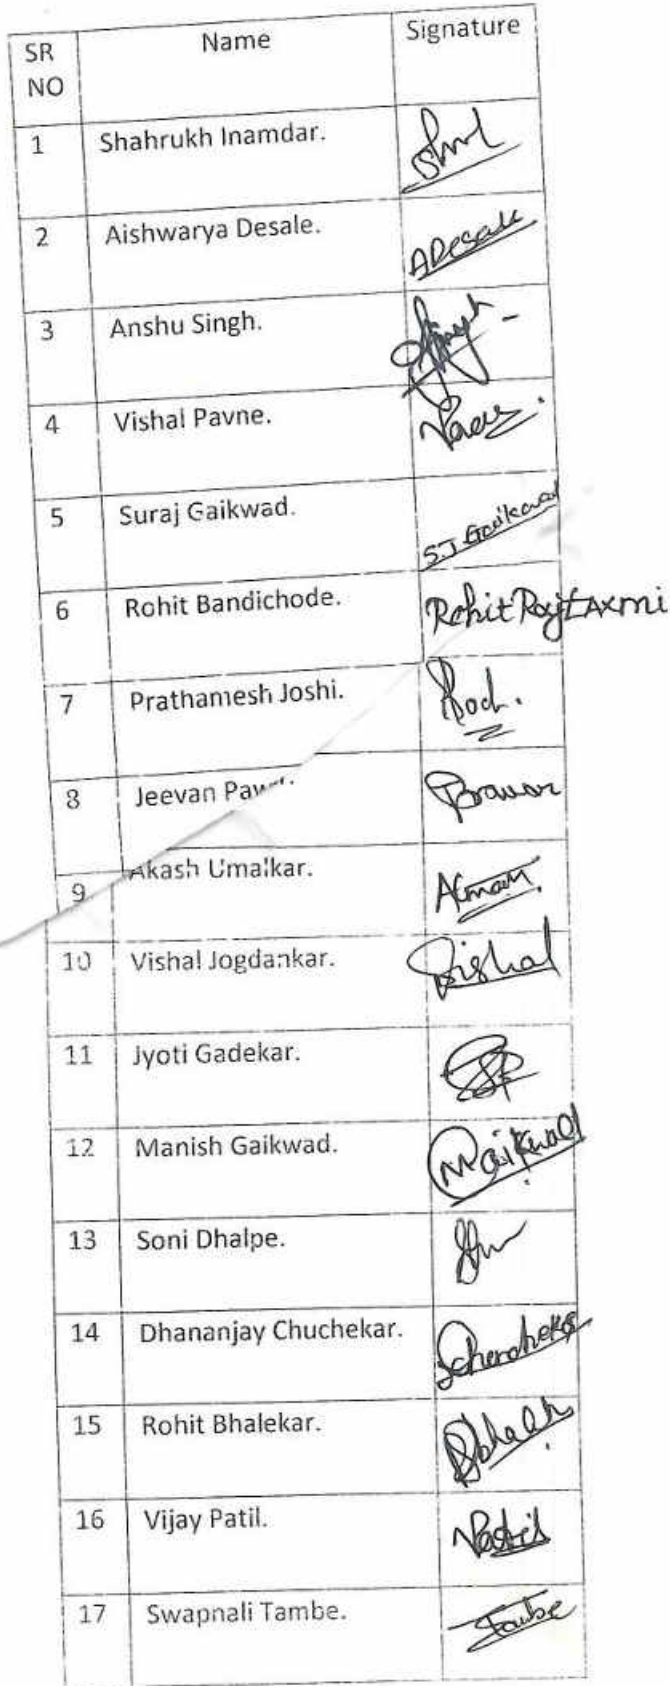 SR NO Name Signature
1 Shahrukh Inamdar.
2 Aishwarya Desale. ADesale
3 Anshu Singh.
4 Vishal Pavne.
5 Suraj Gaikwad. S.J. Gaikwad
6 Rohit Bandichode. Rohit RajLAxmi
7 Prathamesh Joshi.
8 Jeevan
9 Akash Umalkar.
10 Vishal Jogdankar. Vishal
11 Jyoti Gadekar.
12 Manish Gaikwad.
13 Soni Dhalpe.
14 Dhananjay Chuchekar.
15 Rohit Bhalekar.
16 Vijay Patil.
17 Swapnali Tambe. Tambe